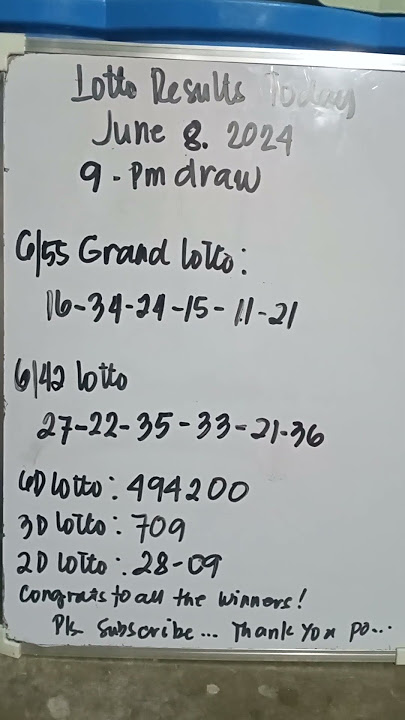 Lotto Results Today
June 8. 2024
9 - Pm draw
6/55 Grand lotto:
16-34-24-15-11-21
6/42 lotto
27-22-35-33-21-36
6D lotto: 494200
3D lotto: 709
2D lotto: 28-09
Congrats to all the winners!
Pls Subscribe... Thank You po...